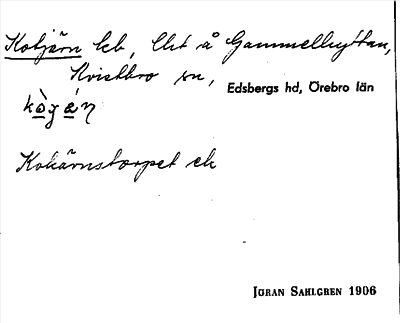 Kotjärn lek, Utt å Gammelhyttan,
Kvistbro sn, Edsbergs hd, Örebro län
Kokärnstorpet ek
JÖRAN SAHLGREN 1906